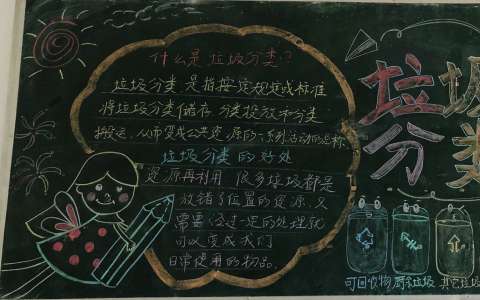 什么是垃圾分类?
垃圾分类是指按一定规定或标准
将垃圾分类储存、分类投放和分类
搬运,从而变成公共资源的一系列活动的总称
垃圾分类的好处
资源再利用 很多垃圾都是
放错了位置的资源,又
需要经过一定的处理就
可以变成我们
日常使用的物品.
垃圾
分类
可回收物 厨余垃圾 其它垃圾